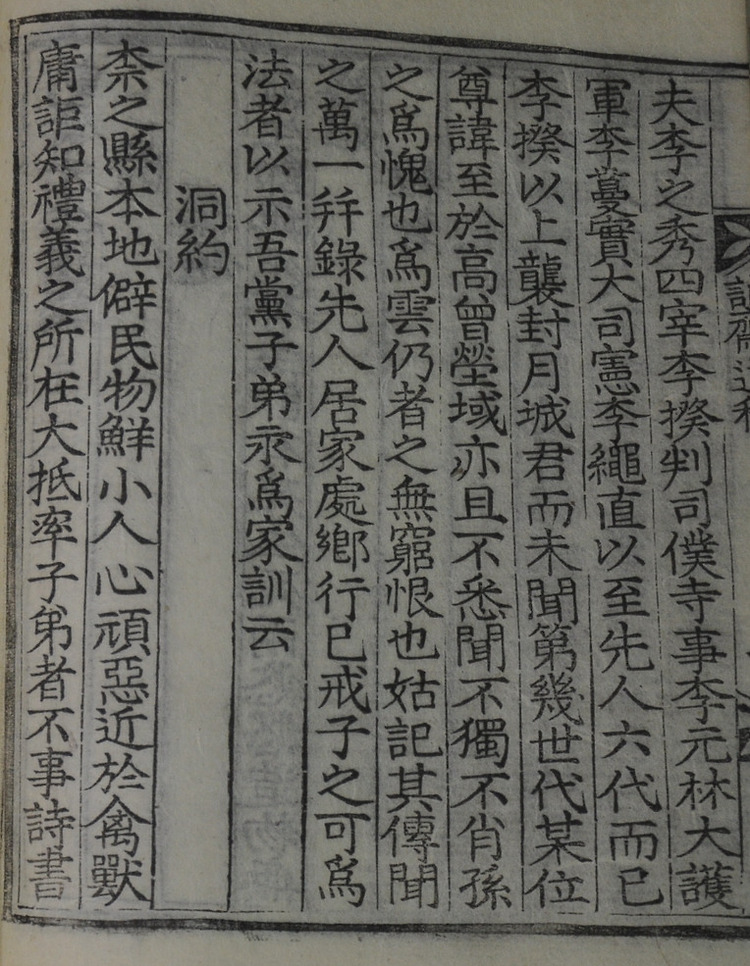 夫李之秀四宰李揆判司僕寺事李元林大護
軍李蔓實大司憲李繩直以至先人六代而已
李揆以上襲封月城君而未聞第幾世代某位
尊諱至於高曾塋域亦且不悉聞不獨不肖孫
之爲愧也爲雲仍者之無窮恨也姑記其傳聞
之萬一幷錄先人居家處鄉行已戒子之可爲
法者以示吾黨子弟永爲家訓云
洞約
柰之縣本地僻民物鮮小人心頑惡近於禽獸
庸詎知禮義之所在大抵率子弟者不事詩書